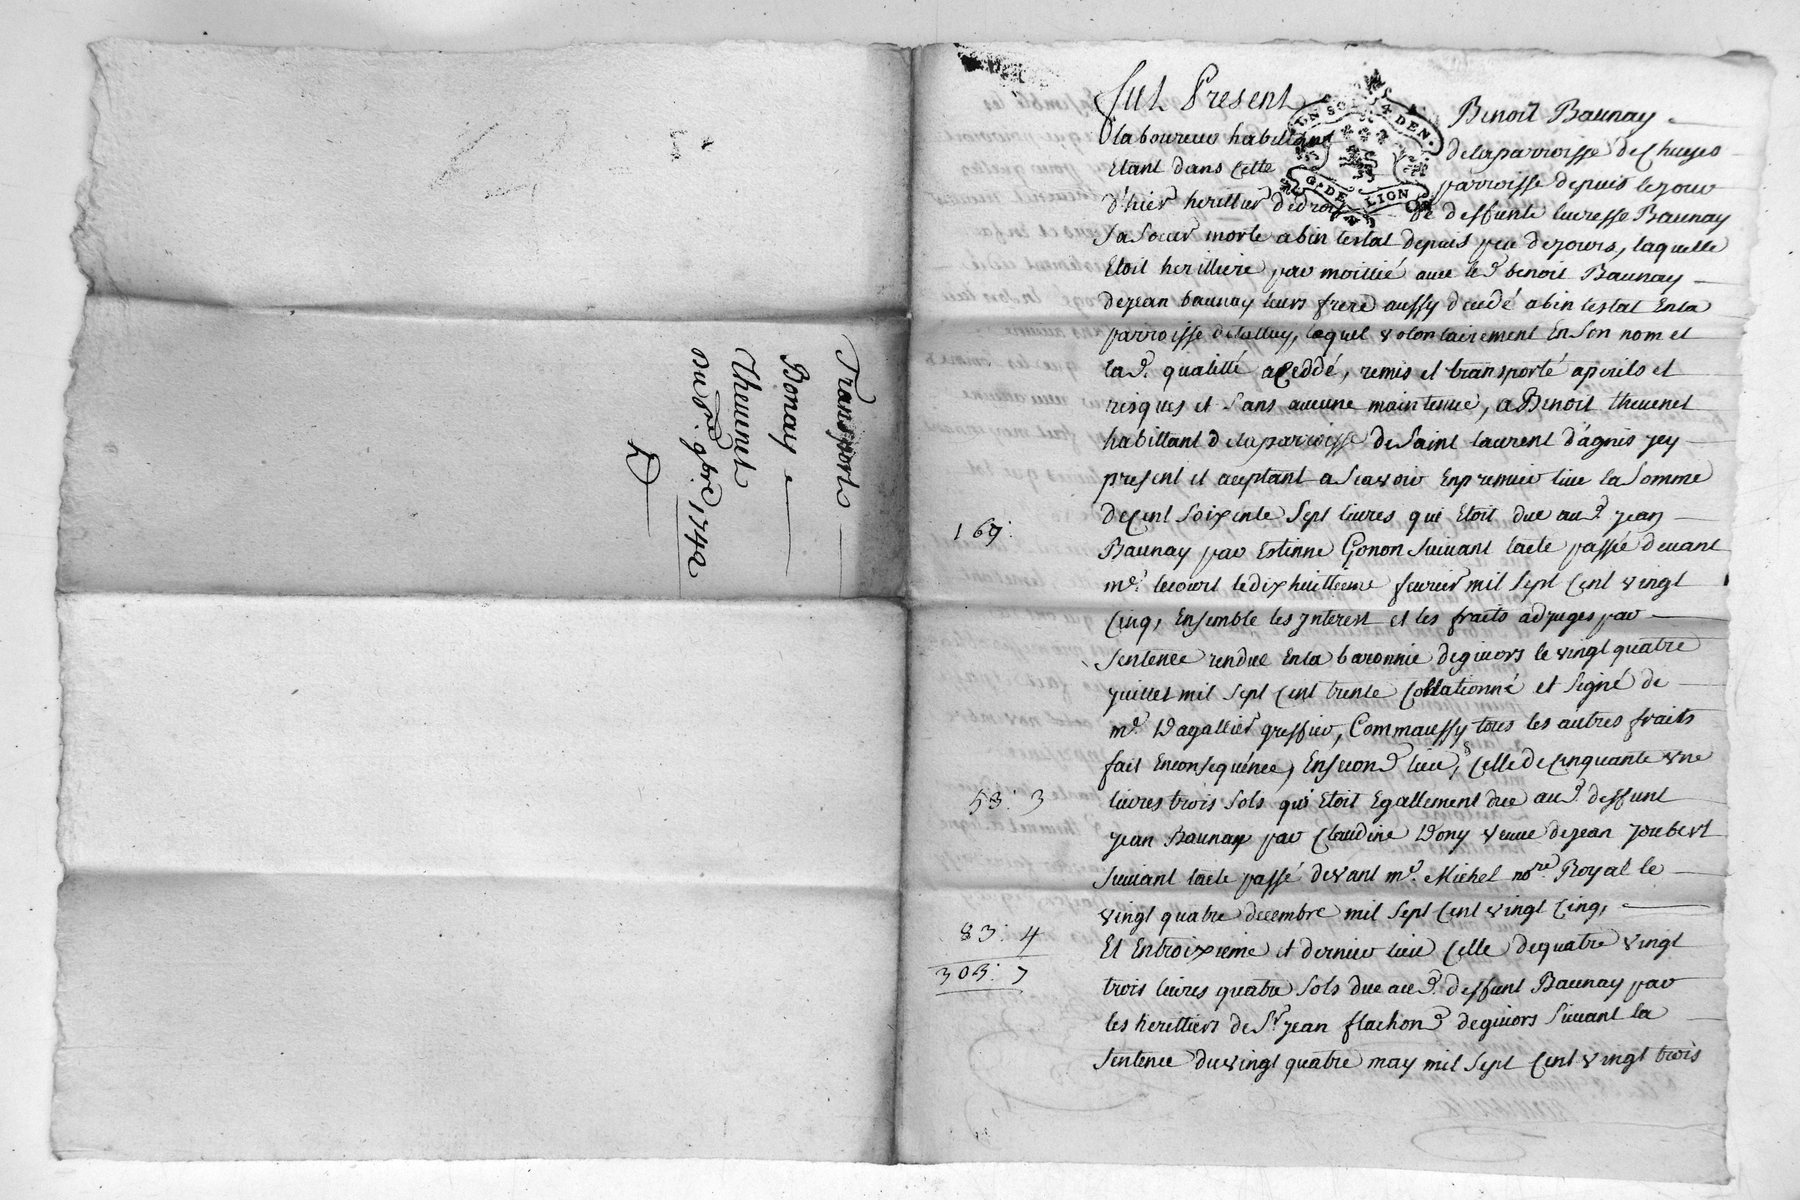 Transport
Bonay
Thevenet
du 8e. 9bre 1742
Fut Present Benoit Baunay
UN SOL 4 DEN.
G. DE LION
laboureur habittant delaparroisse de Chuyes
Etant dans Cette parroisse depuis lejour
d'hier herittier dedroit de deffunte lucresse Baunay
Sa Soeur morte abin testat depuis peu dejours, laquelle
Etoit herittiere par moittié avec le d. benoit Baunay
dejean baunay leurs frere aussy decedé abin testat Enla
parroisse detalluy, lequel volontairement En Son nom et
la d. qualitté a Ceddé, remis et transporté aperils et
risques et Sans aucune maintenue, a Benoit thevenet
habittant delaparroisse de Saint laurent d'agnis jcy
present et aceptant a Scavoir Enpremier lieu la Somme
167: deCent Soixente Sept livres qui Etoit due au d. jean
Baunay par Estienne Gonon Suivant lacte passé devant
me. lecourt ledix huittieme fevrier mil Sept Cent vingt
Cinq, Ensemble les jnterest et les fraits adjuges par
Sentence rendue Enla baronnie degivors le vingt quatre
juillet mil Sept Cent trente Collationné et Signé de
me. Dagallier greffier, Commaussy tous les autres fraits
fait Enconsequence, Ensecond lieu, Celle deCinquante vne
53: 3 livres trois Sols qui Etoit Egallement due au d. deffunt
jean Baunay par Claudine Dony veuve dejean Joubert
Suivant lacte passé devant me. Michel nore. Royal le
vingt quatre decembre mil Sept Cent vingt Cinq,
83: 4 Et Entroixieme et dernier lieu Celle dequatre vingt
303: 7 trois livres quatre Sols due au d. deffunt Baunay par
les herittiers de Sr. jean flachon degivors Suivant la
Sentence duvingt quatre may mil Sept Cent vingt trois